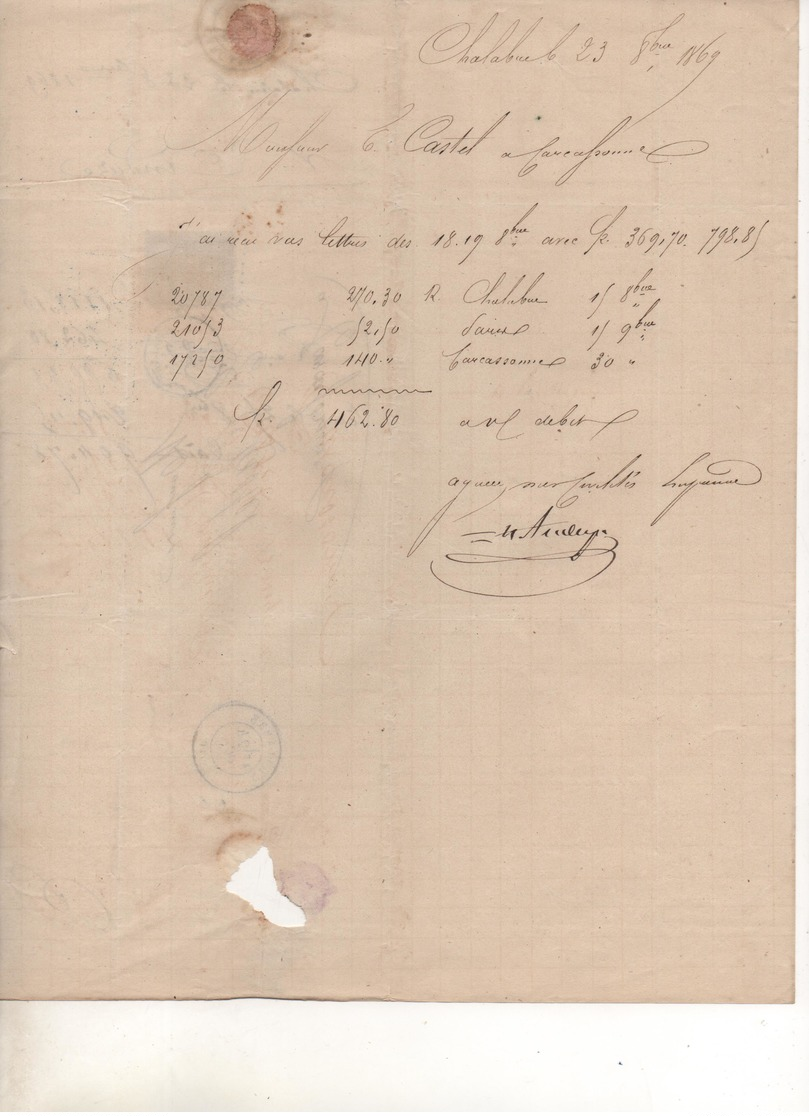 Chalabre le 23 8bre 1869
Monsieur E. Castel a Carcassonne
J'ai recu vos lettres des 18.19 8bre avec fr. 369,70. 798.85
20787 270.30 R. Chalabre 15 8bre
21053 52,50 Paris 15 9bre
17250 140 " Carcassonne 30 "
fr. 462.80 a vs debit
agreez mes Civilités